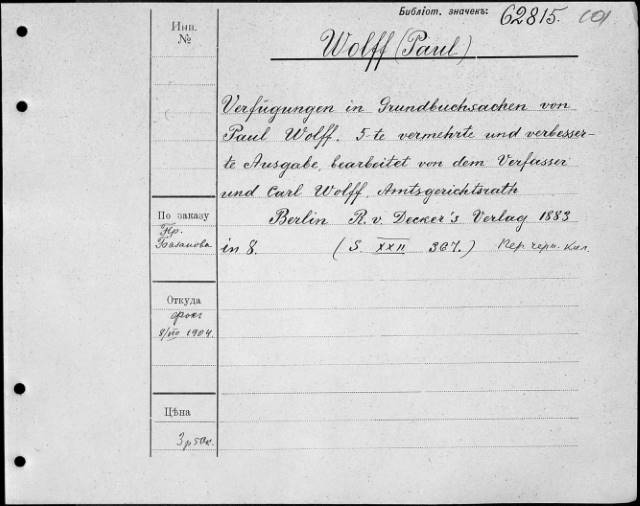 Библіот. значекъ: 62815. 601
Инв.
№
Wolff (Paul)
Verfügungen in Grundbuchsachen von
Paul Wolff. 5-te vermehrte und verbesser-
te Ausgabe, bearbeitet von dem Verfasser
und Carl Wolff, Amtsgerichtsrath
Berlin R. v. Decker's Verlag 1883
in 8. (S. XXII 367.) Пер. черн. кал.
По заказу
Пр.
Базанова
Откуда
Фокъ
8/VII 1904.
Цѣна
3 р 50 к.